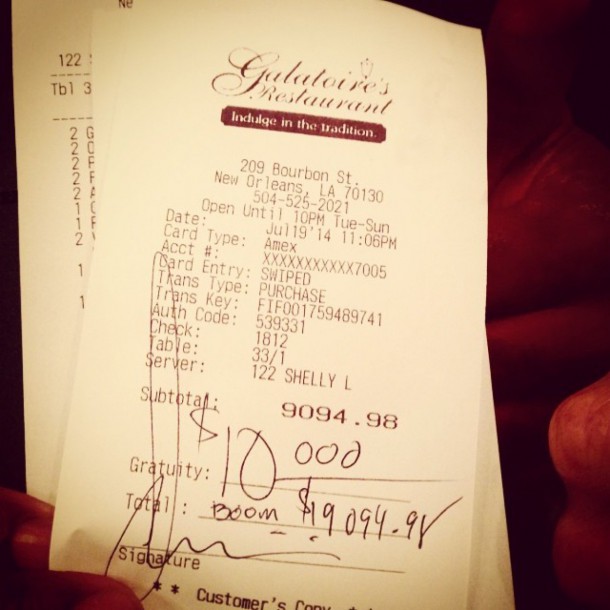 Ne
122
Tbl 3
2 G
2
2
2
2
1
1
2
1
1
Galatoire's
Restaurant
Indulge in the tradition.
209 Bourbon St.
New Orleans, LA 70130
504-525-2021
Open Until 10PM Tue-Sun
Date: Jul19'14 11:06PM
Card Type: Amex
Acct #: XXXXXXXXXXX7005
Card Entry: SWIPED
Trans Type: PURCHASE
Trans Key: FIF001759489741
Auth Code: 539331
Check: 1812
Table: 33/1
Server: 122 SHELLY L
Subtotal: 9094.98
Gratuity: $10 000
Total: BOOM $19094.98
Signature
* * Customer's Copy *